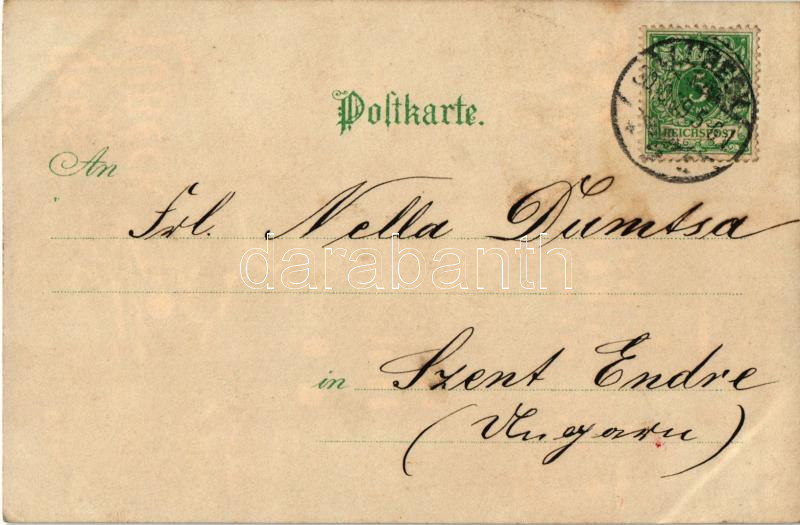 Postkarte.
5
REICHSPOST
An
Frl. Nella Dumtsa
darabanth
in Szent Endre
(Ungarn)